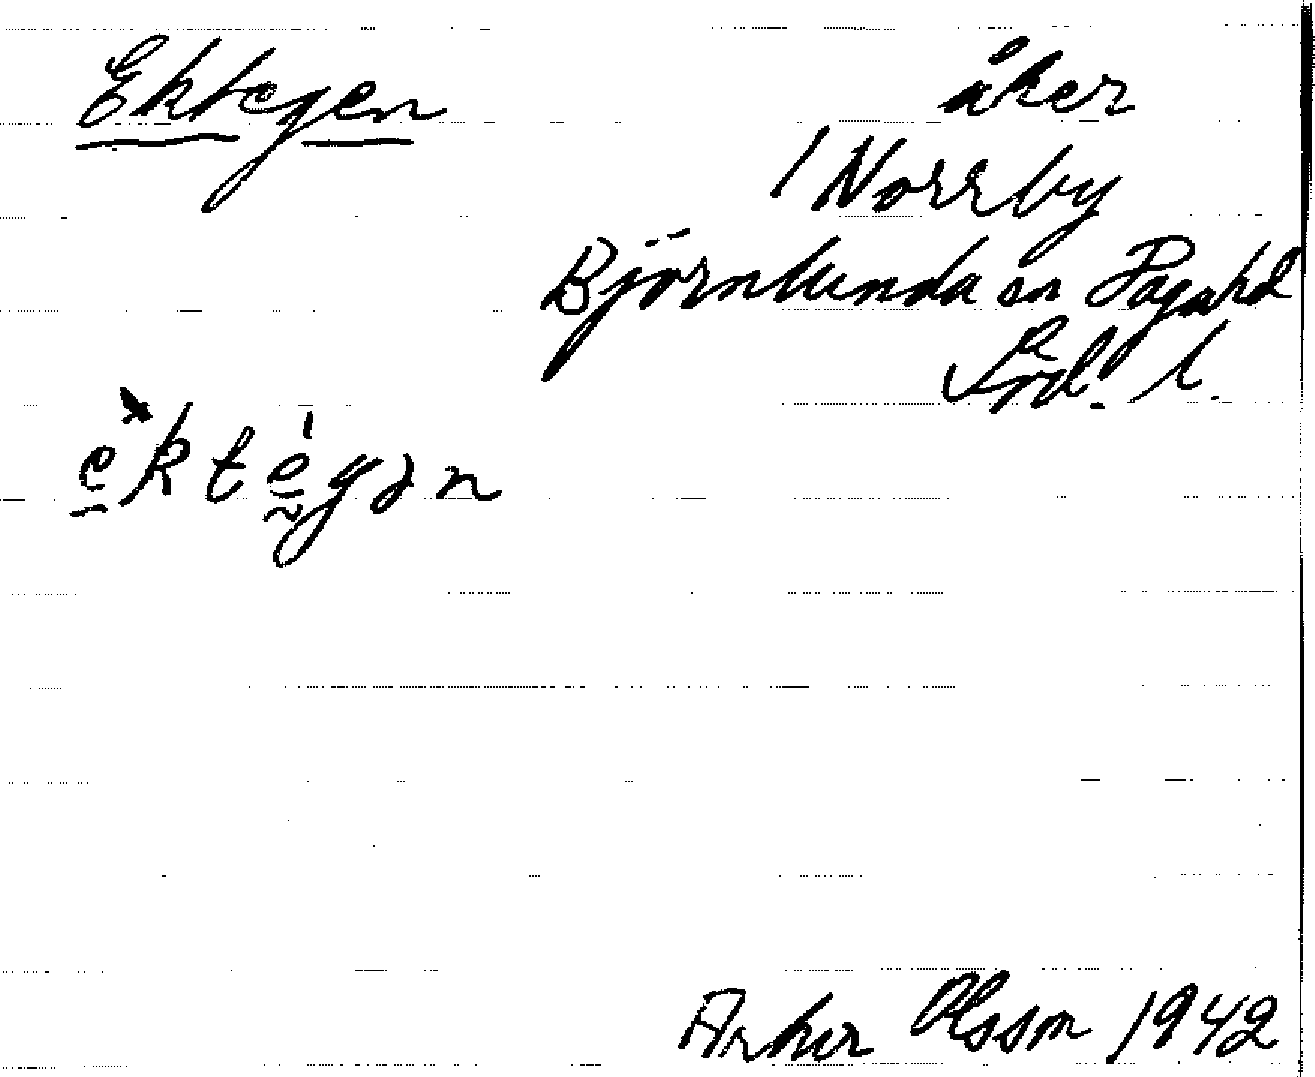 Ektegen
åker
/ Norrby
Björnlunda sn Daga hd
Söd. l.
ektegən
Olsson 1942